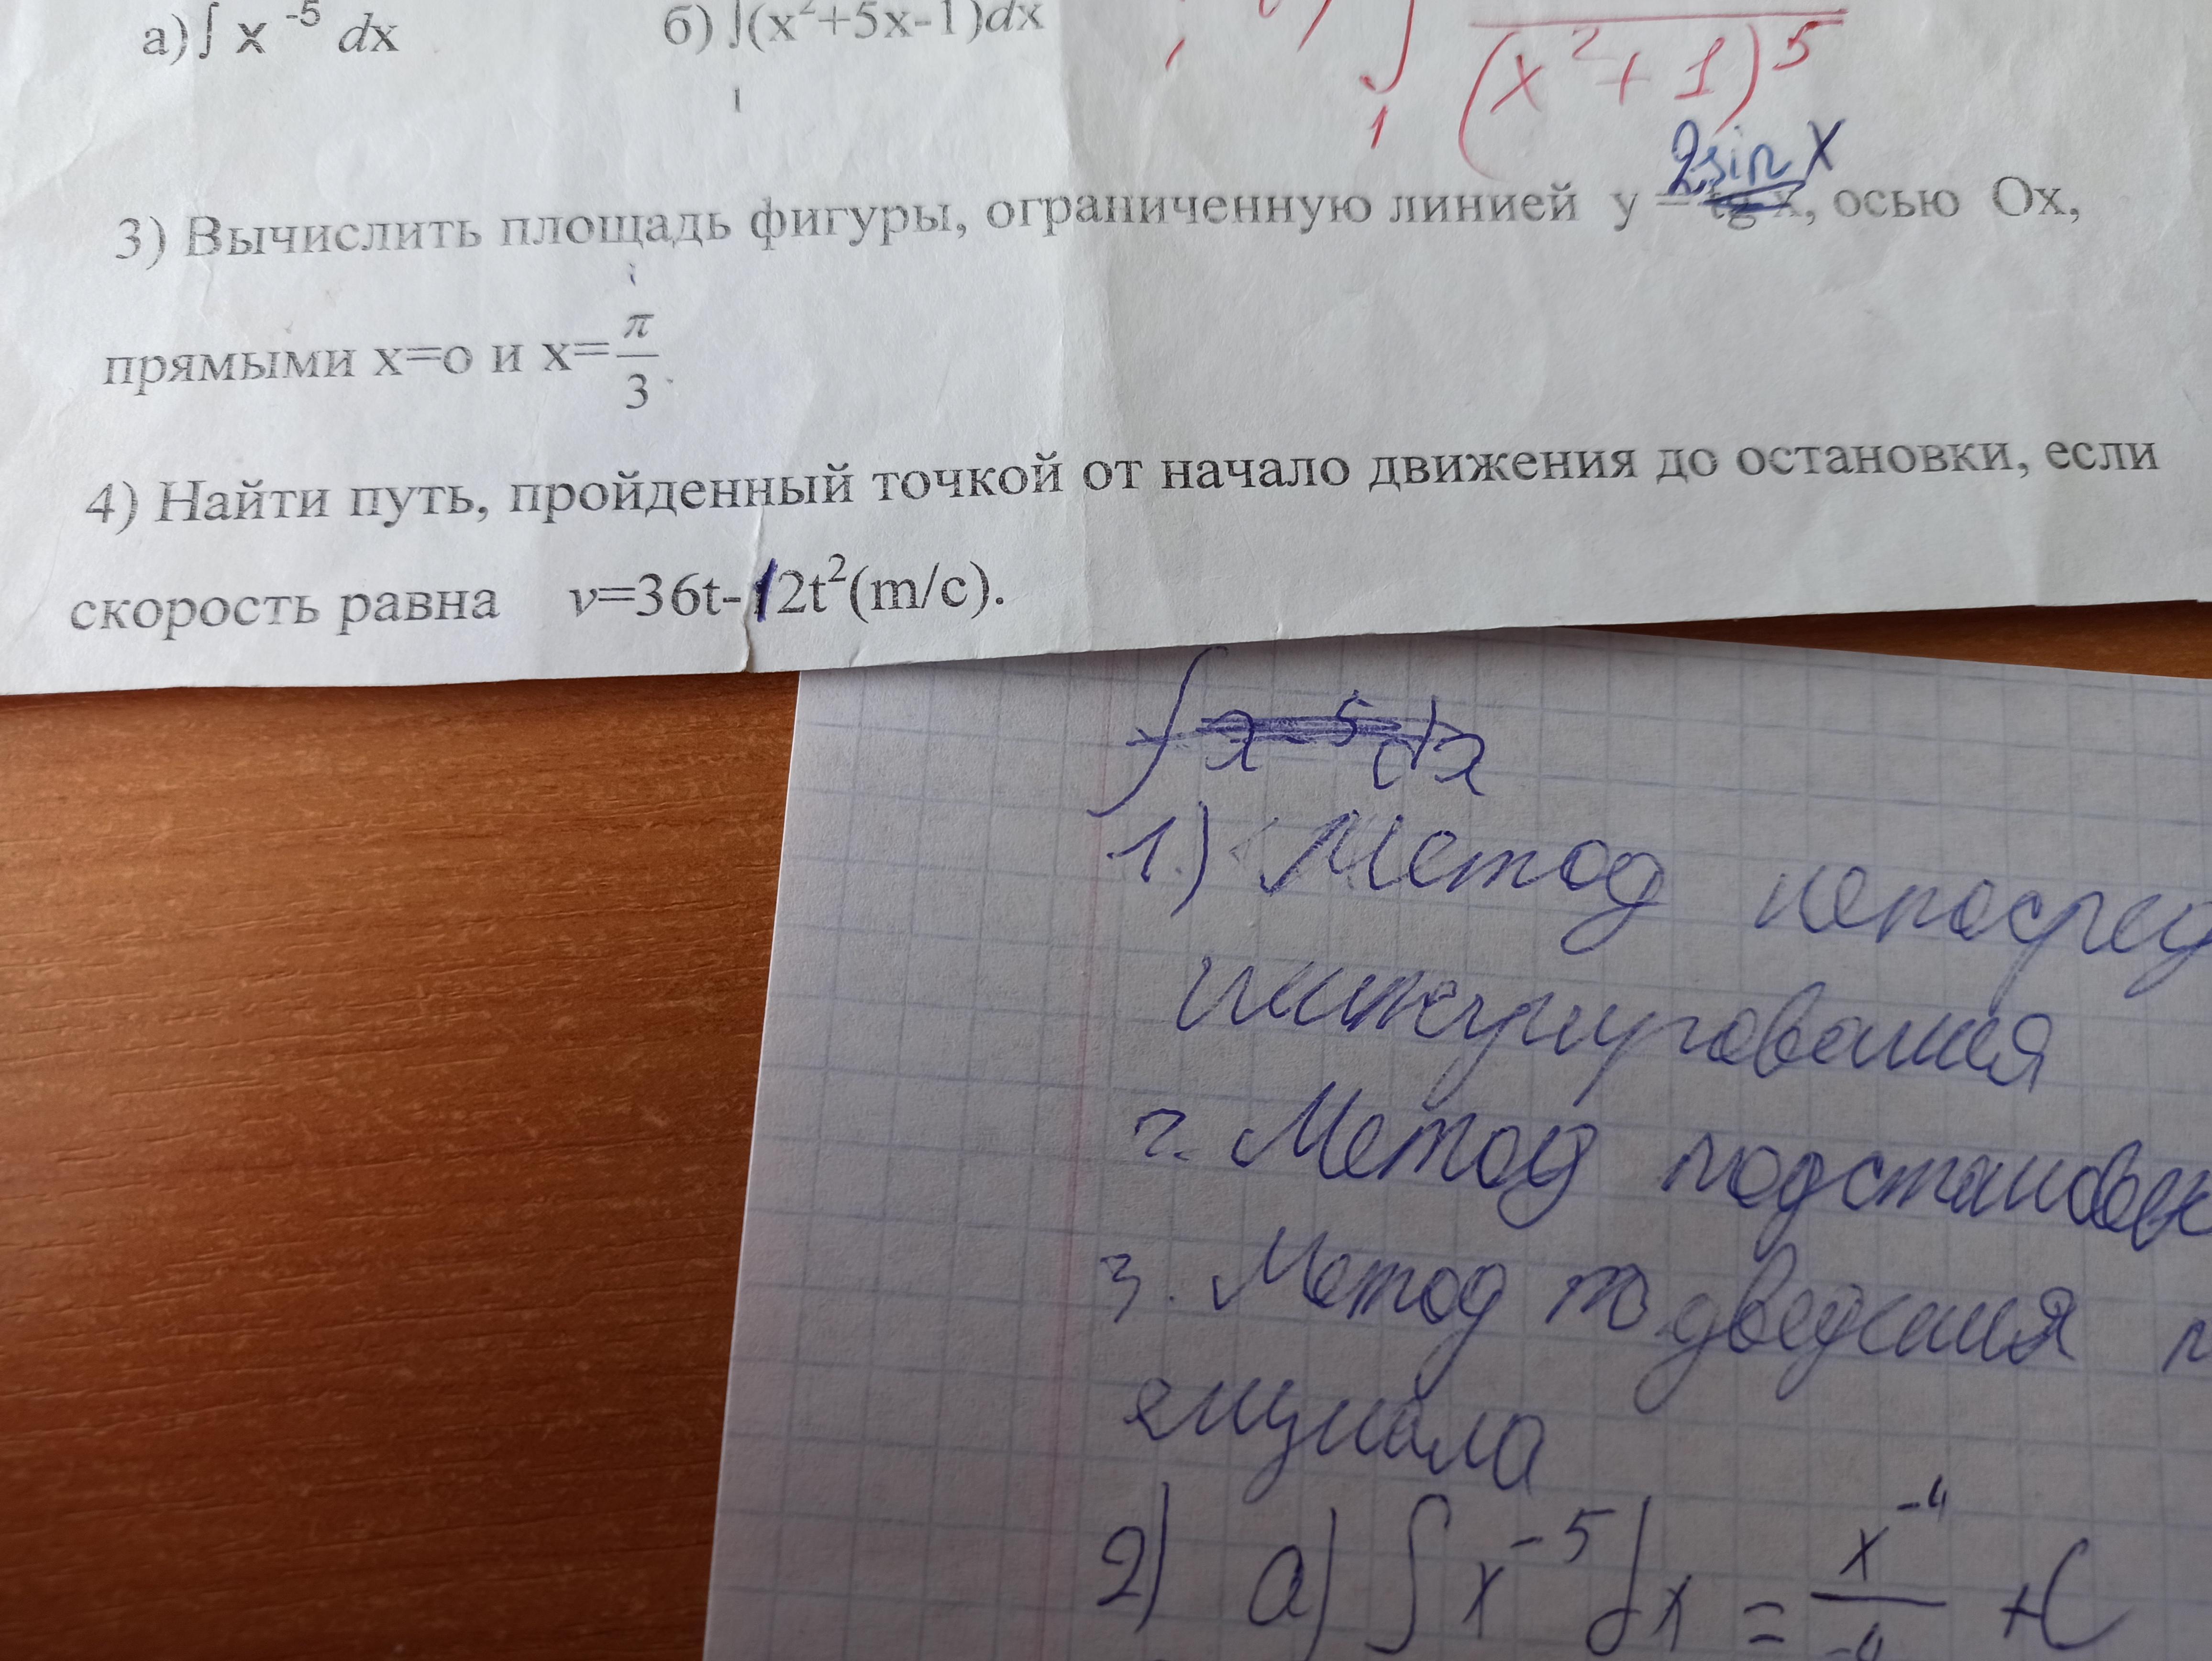 а) ∫ x ⁻⁵ dx б) ∫(x²+5x-1)dx
∫ (x²+1)⁵
1
2sin x
3) Вычислить площадь фигуры, ограниченную линией y = tg x, осью Ox,
прямыми x=o и x=π/3.
4) Найти путь, пройденный точкой от начало движения до остановки, если
скорость равна v=36t-12t²(m/c).
∫x-⁵dx
1.) Метод непосред
интегрирования
2. Метод подстановк
3. Метод подведения
енциала
2) а) ∫x⁻⁵dx = x⁻⁴/-4 +C